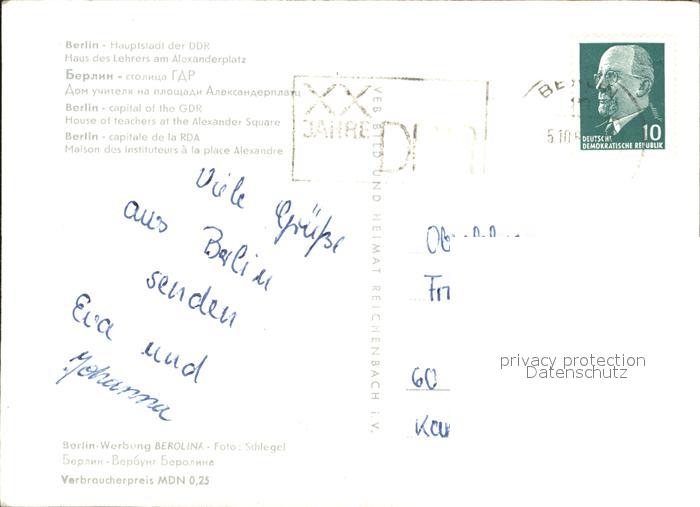 Berlin - Hauptstadt der DDR
Haus des Lehrers am Alexanderplatz
Берлин - столица ГДР
Дом учителя на площади Александерплатц
Berlin - capital of the GDR
House of teachers at the Alexander Square
Berlin - capitale de la RDA
Maison des instituteurs à la place Alexandre
XX
JAHRE
5.10
10
DEUTSCHE
DEMOKRATISCHE REPUBLIK
VEB BILD UND HEIMAT REICHENBACH i.V.
Viele Grüße
aus Berlin
senden
Eva und
Johanna
60
privacy protection
Datenschutz
Berlin-Werbung BEROLINA - Foto: Schlegel
Берлин - Вербунг Беролина
Verbraucherpreis MDN 0,25